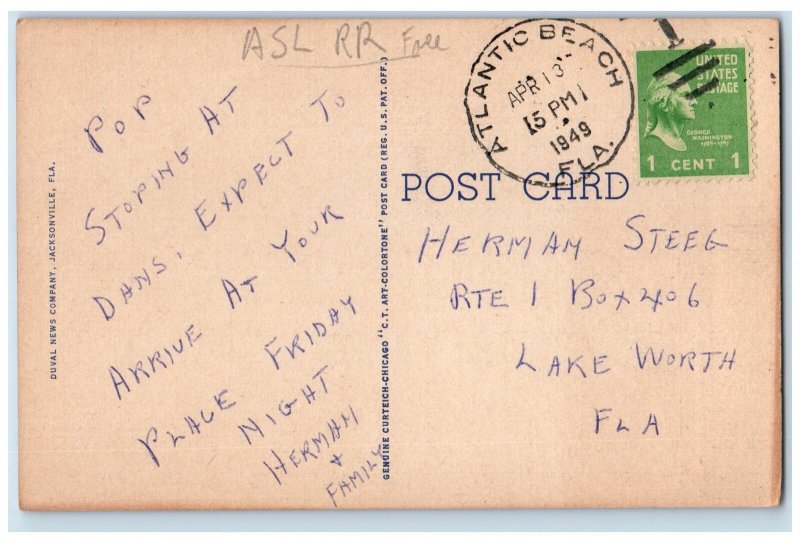 ASL RR Free
POP
STOPING AT
DANS, EXPECT TO
ARRIVE AT YOUR
PLACE FRIDAY
NIGHT
HERMAN
+
FAMILY
DUVAL NEWS COMPANY, JACKSONVILLE, FLA.
GENUINE CURTEICH-CHICAGO "C.T. ART-COLORTONE" POST CARD (REG. U.S. PAT. OFF.)
ATLANTIC BEACH
APR 13
5 PM
1949
FLA.
1
UNITED
STATES
POSTAGE
GEORGE
WASHINGTON
1789-1797
1 CENT 1
POST CARD
HERMAN STEEG
RTE 1 BOX 406
LAKE WORTH
FLA